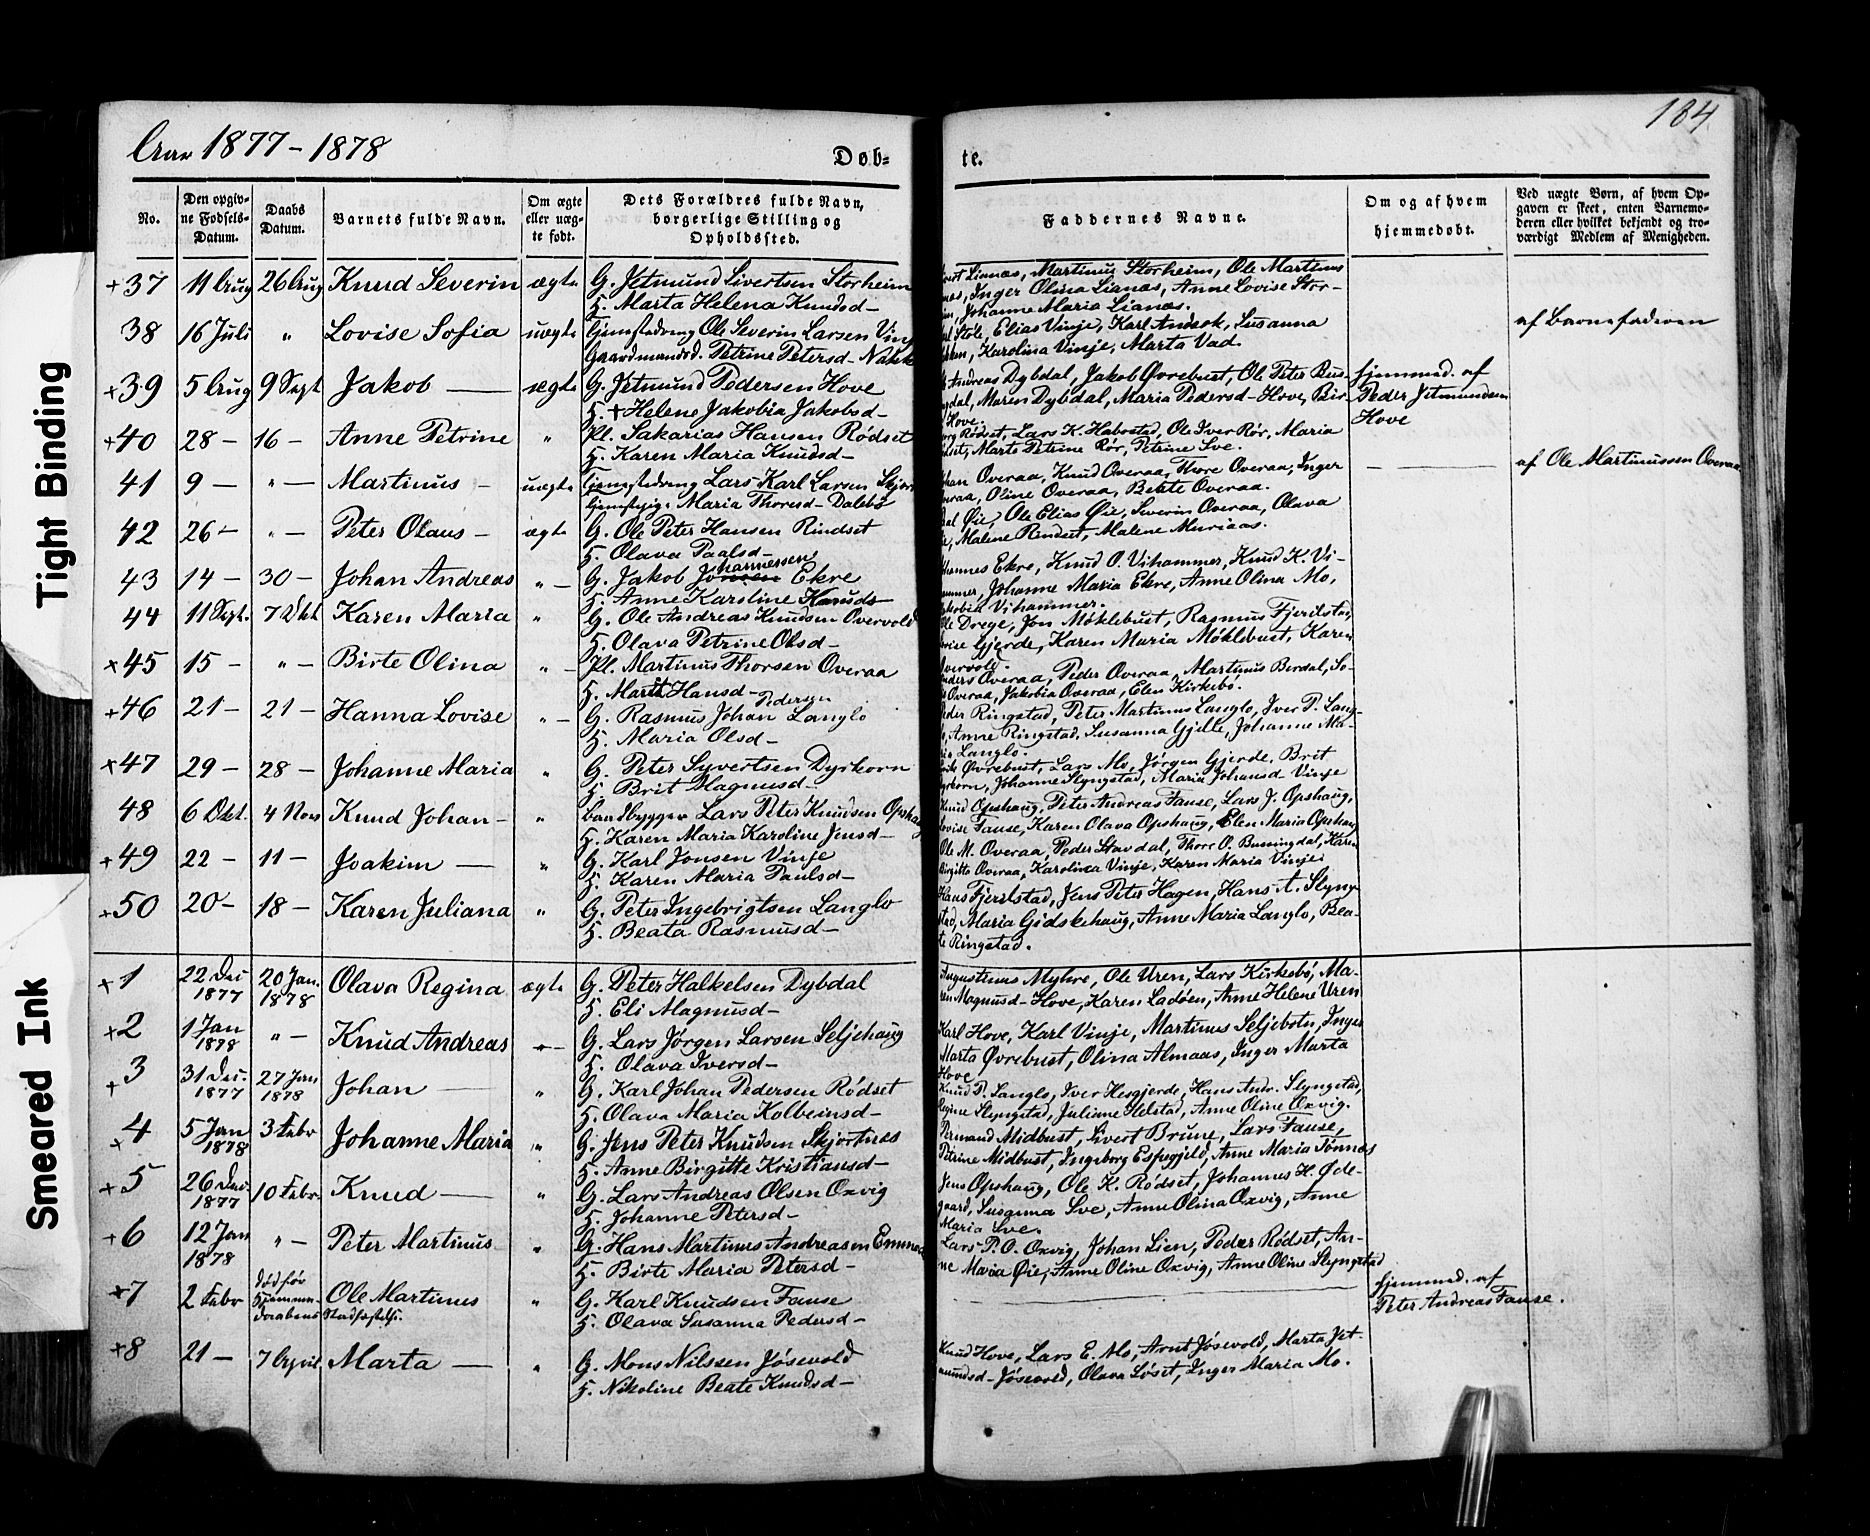 Aar 1877-1878
Døb-
No.
Den opgiv-
ne Fødsels-
Datum.
Daabs
Datum.
Barnets fulde Navn.
Om ægte
eller uæg-
te født.
Dets Forældres fulde Navn,
borgerlige Stilling og
Opholdssted.
+37 11 Aug 26 Aug Knud Severin ægte G. Jetmund Sivertsen Storheim
H. Marta Helena Knudsd-
38 16 Juli " Lovise Sofia uægte Ole Severin Larsen
Gaardmandsd. Petrine Petersd-
+39 5 Aug 9 Sept Jakob — ægte G. Jetmund Pedersen Hove
H. + Helene Jakobia Jakobsd-
+40 28 - 16 - Anne Petrine " Pl. Sakarias Hansen Rødset
H. Karen Maria Knudsd-
41 9 - " - Martinus - uægte Lars Karl Larsen
Maria Thoresd- Dalebø
42 26 - " - Peter Olaus - ægte G. Ole Peter Hansen Rindset
H. Olava Paalsd-
43 14 - 30 - Johan Andreas " - G. Jakob Johannessen Ekre
H. Anne Karoline Knudsd-
44 11 Sept. 7 Okt Karen Maria " G. Ole Andreas Knudsen Overvold
H. Olava Petrine Olsd-
+45 15 - " - Birte Olina " - Pl. Martinus Thorsen Overaa
H. Marit Hansd-
+46 21 - 21 - Hanna Lovise " - G. Rasmus Johan Pedersen Langlo
H. Maria Olsd-
+47 29 - 28 - Johanne Maria " G. Peter Syvertsen Dyrkorn
H. Brit Magnusd-
48 6 Okt. 4 Nov Knud Johan - " Baadbygger Lars Peter Knudsen Opshaug
H. Karen Maria Karoline Jensd-
+49 22 - 11 - Joakim — " G. Karl Jonsen Vinje
H. Karen Maria Paulsd-
+50 20 - 18 - Karen Juliana " G. Peter Ingebrigtsen Langlo
H. Beata Rasmusd-
+1 22 Dec 1877 20 Jan. 1878 Olava Regina ægte G. Peter Halkelsen Dybdal
H. Eli Magnusd-
+2 1 Jan 1878 " - Knud Andreas " - G. Lars Jørgen Larsen Seljehaug
H. Olava Iversd-
+3 31 Dec. 1877 27 Jan 1878 Johan — " G. Karl Johan Pedersen Rødset
H. Olava Maria Kolbeinsd-
+4 5 Jan 1878 3 Febr Johanne Maria " G. Jens Peter Knudsen Skjortnes
H. Anne Birgitte Kristiansd-
+5 26 Dec. 1877 10 Febr. Knud — " G. Lars Andreas Olsen Oxvig
H. Johanne Petersd-
+6 12 Jan 1878 " - Peter Martinus " G. Hans Martinus Andreasen
H. Birte Maria Petersd-
+7 2 Febr død før Hjemme-daabens Stadfæstelse. Ole Martinus " G. Karl Knudsen Fause
H. Olava Susanna Pedersd-
+8 21 - 7 April Marta — " G. Mons Nilssen Jøsevold
H. Nikoline Beate Knudsd-
184
te.
Faddernes Navne.
Om og af hvem
hjemmedøbt.
Ved uægte Børn, af hvem Op-
gaven er skeet, enten Barnemo-
deren eller hvilket bekjendt og tro-
værdigt Medlem af Menigheden.
Lianes, Martinus Storheim, Ole Martinus
Inger Olina Lianes, Anne Lovise Stor-
Johanne Maria Lianes.
Støle, Elias Vinje, Karl Andsok, Susanna
Karolina Vinje, Marta Vad.
af Barnefaderen
Andreas Dybdal, Jakob Øvrebust, Ole Peter Bus-
Maren Dybdal, Maria Pedersd- Hove, Bir-
Hove.
Hjemmed. af
Peder Jetmundsen
Hove
Rødset, Lars K. Habostad, Ole Iver Rør, Maria
Marte Petrine Rør, Petrine Sve.
Overaa, Knud Overaa, Thore Overaa, Inger
Oline Overaa, Berte Overaa.
— — af Ole Martinussen Overaa
Øie, Ole Elias Øie, Severin Overaa, Olava
Malene Rindset, Malene Muriaas.
Ekre, Knud O. Vihammer, Knud K. Vi-
Johanne Maria Ekre, Anne Olina Mo,
Vihammer.
Ole Drege, Jon Møklebust, Rasmus Fjerilstad,
Gjerde, Karen Maria Møklebust, Karen
Overvold.
Overaa, Peder Overaa, Martinus Berdal, So-
Overaa, Jakobia Overaa, Elen Kirkebø.
Peder Ringstad, Peter Martinus Langlo, Iver P. Lang-
Anne Ringstad, Susanna Gjelle, Johanne Ma-
Langlo.
Øvrebust, Lars Mo, Jørgen Gjerde, Brit
Johanne Slyngstad, Maria Johansd Vinje
Knud Opshaug, Peter Andreas Fause, Lars J. Opshaug,
Lovise Fause, Karen Olava Opshaug, Elen Maria Opshaug
Ole M. Overaa, Peder Stavdal, Thore O. Busengdal, Karen
Birgitte Overaa, Karolina Vinje, Karen Maria Vinje.
Hans Fjerilstad, Jens Peter Hagen, Hans A. Slyng-
stad, Maria Gidskehaug, Anne Maria Langlo, Bea-
te Ringstad.
Augustinus Myhre, Ole Uren, Lars Kirkebø, Ma-
ren Magnusd- Hove, Karen Ladøen, Anne Helene Uren
Karl Hove, Karl Vinje, Martinus Seljebotn, Inger
Marta Øvrebust, Olina Almaas, Inger Marta
Hove
Knud P. Langlo, Iver Hesgjerde, Hans Andr. Slyngstad,
Regine Slyngstad, Juliane Helstad, Anne Oline Oxvig.
Permand Midbust, Sivert Brune, Lars Fause,
Petrine Midbust, Ingeborg Espegjeld, Anne Maria Tønnes
Jens Opshaug, Ole K. Rødset, Johannes H. Øde-
gaard, Susanna Sve, Anne Olina Oxvig, Anne
Maria Sve.
Lars P. O. Oxvig, Johan Lien, Peder Rødset, An-
ne Maria Øie, Anne Oline Oxvig, Anne Oline Slyngstad
Hjemmed. af
Peter Andreas Fause.
Knud Hove, Lars E. Mo, Arnt Jøsevold, Marta Jet-
mundsd- Jøsevold, Olava Løset, Inger Maria Mo.
Tight Binding
Smeared Ink